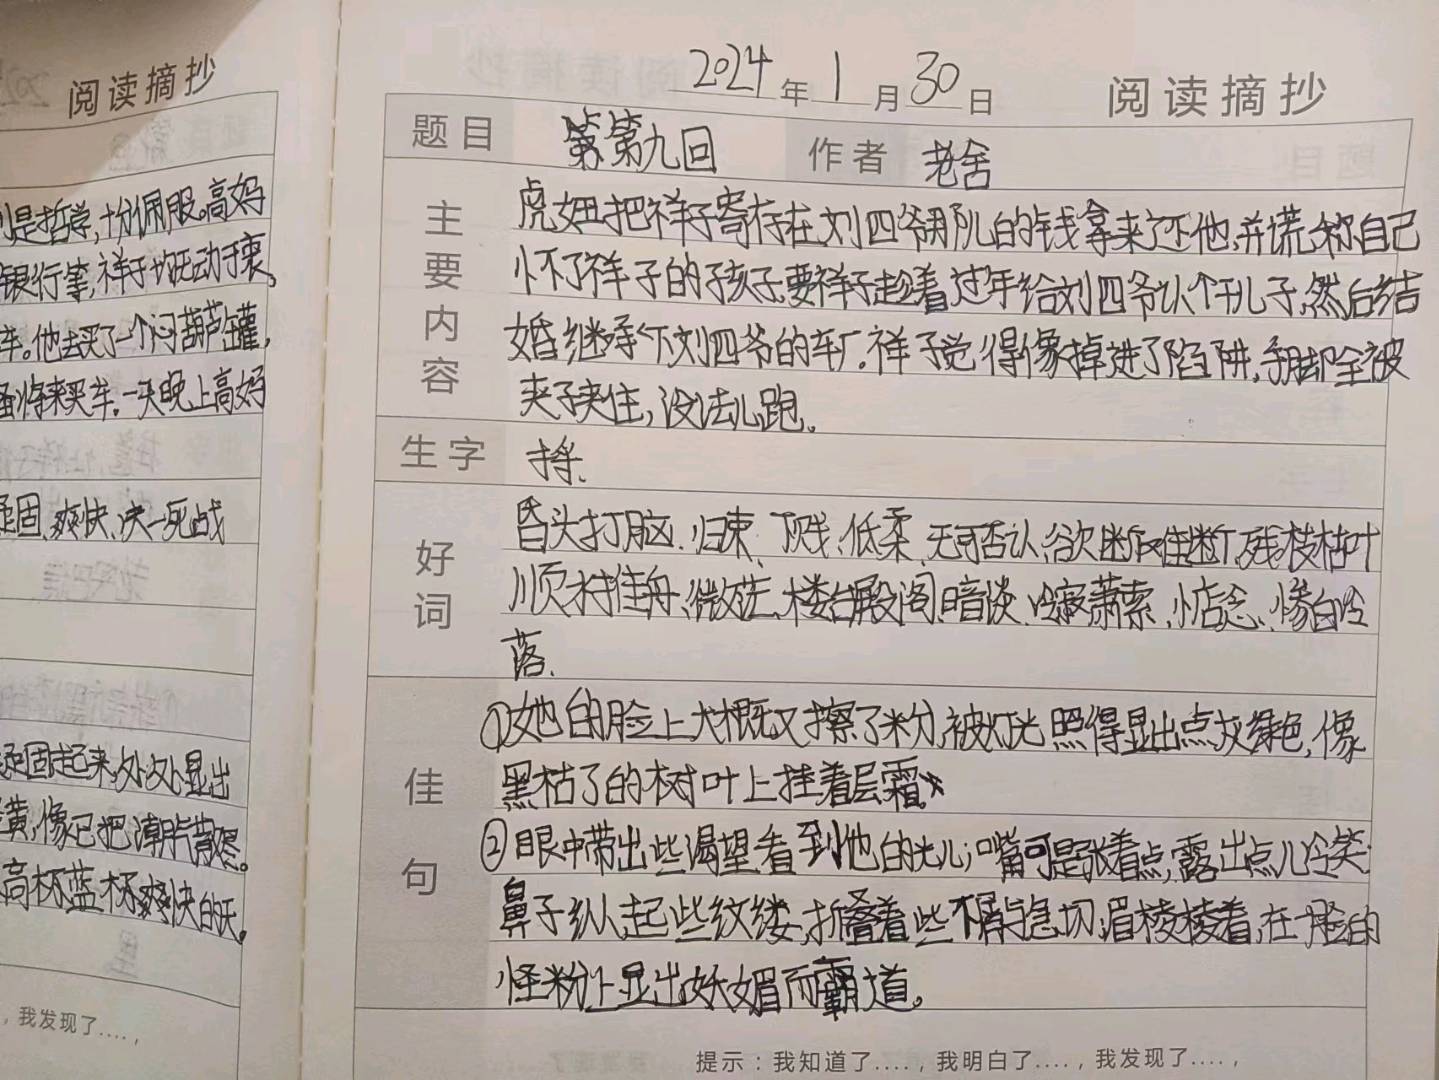 阅读摘抄
是哲学,十分佩服。高妈
银行等,祥子均无动于衷。
车。他去买了一个闷葫芦罐,
将来买车。一天晚上高妈
凝固.爽快.决一死战
凝固起来,处处显出
黄,像已把潮脊
高杯蓝杯爽快的天。
,我发现了....,
2024年1月30日 阅读摘抄
题目 第第九回 作者 老舍
主要内容
虎妞把祥子寄存在刘四爷那儿的钱拿来了还他,并谎称自己
怀了祥子的孩子,要祥子趁着过年给刘四爷认个干儿子,然后结
婚继承下刘四爷的车厂.祥子觉得像掉进了陷阱,手脚却全被
夹子夹住,没法儿跑。
生字 捋.
好词
昏头打脑.归束.顶残.低柔.无可否认.欲断难断.残枝枯叶
顺水推舟.微茫.楼台殿阁.暗淡.冷寂萧索.惦念.惨白冷
落.
佳句
①她的脸上大概又擦了粉,被灯光照得显出点灰绿色,像
黑枯了的树叶上挂着层霜。
②眼中带出些渴望看到他的光儿;嘴可是张着点,露出点儿冷笑;
鼻子纵起些纹缕,折叠着些不屑与急切;眉棱棱着,在一脸的
怪粉上显出妖媚而霸道。
提示:我知道了....,我明白了....,我发现了....,